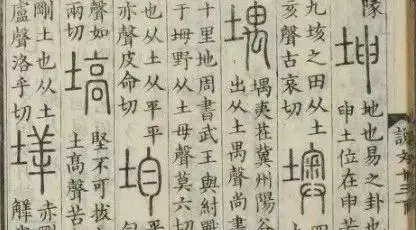 說文十三下
隊
坤
地也易之卦也
申土位在申苦
九垓之田从土
亥聲古哀切
墺
四
堣
堣夷在冀州陽谷
出从土禺聲尚書
十里地周書武王與紂戰
于坶野从土母聲莫六切
也从土从平平
亦聲皮命切
均
聲如
兩切
塙
堅不可拔
土高聲苦
剛土也从土
盧聲洛乎切
垟
赤剛
解省